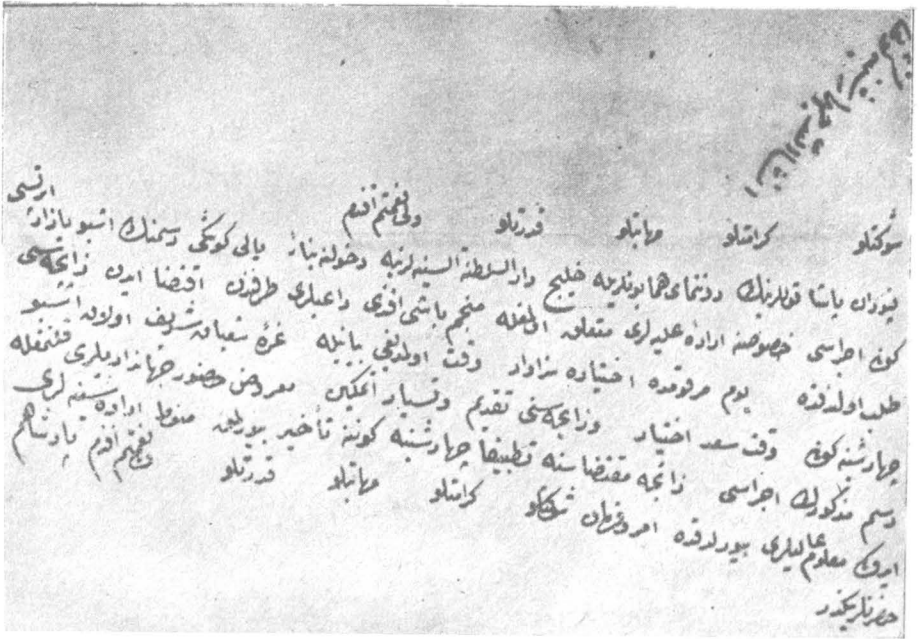 شوكتلو كرامتلو مهابتلو قدرتلو ولی نعمتم افندم
پاشا قوللرينك دوننمای همايونلريله خليج دار السلطنة السنيه لرينه دخولنه يالی كوشكی رسمنك اشبو بازار ارتسی
كونی اجراسی خصوصنه اراده عليه لری متعلق اولمغله منجم باشی افندی داعيلری طرفندن اقتضا ايدن زايچه سی
طلب اولندقده يوم مرقومده اختياره سزاوار وقت اولمديغی بيانيله غرهٔ شعبان شريف اولان اشبو
چهارشنبه كونی وقت سعد اختيار و زايچه سنی تقديم ايتمكين معروض حضور جهاندارلری قلنمغله
رسم مذكورك اجراسی زايچه مقتضاسنه تطبيقا چهارشنبه كوننه تأخير بيورلمق منوط اراده سنيه لری
ايدوكی معلوم عاليلری بيورلدقده امر و فرمان شوكتلو كرامتلو مهابتلو قدرتلو ولی نعمتم افندم پادشاهم
حضرتلرينكدر